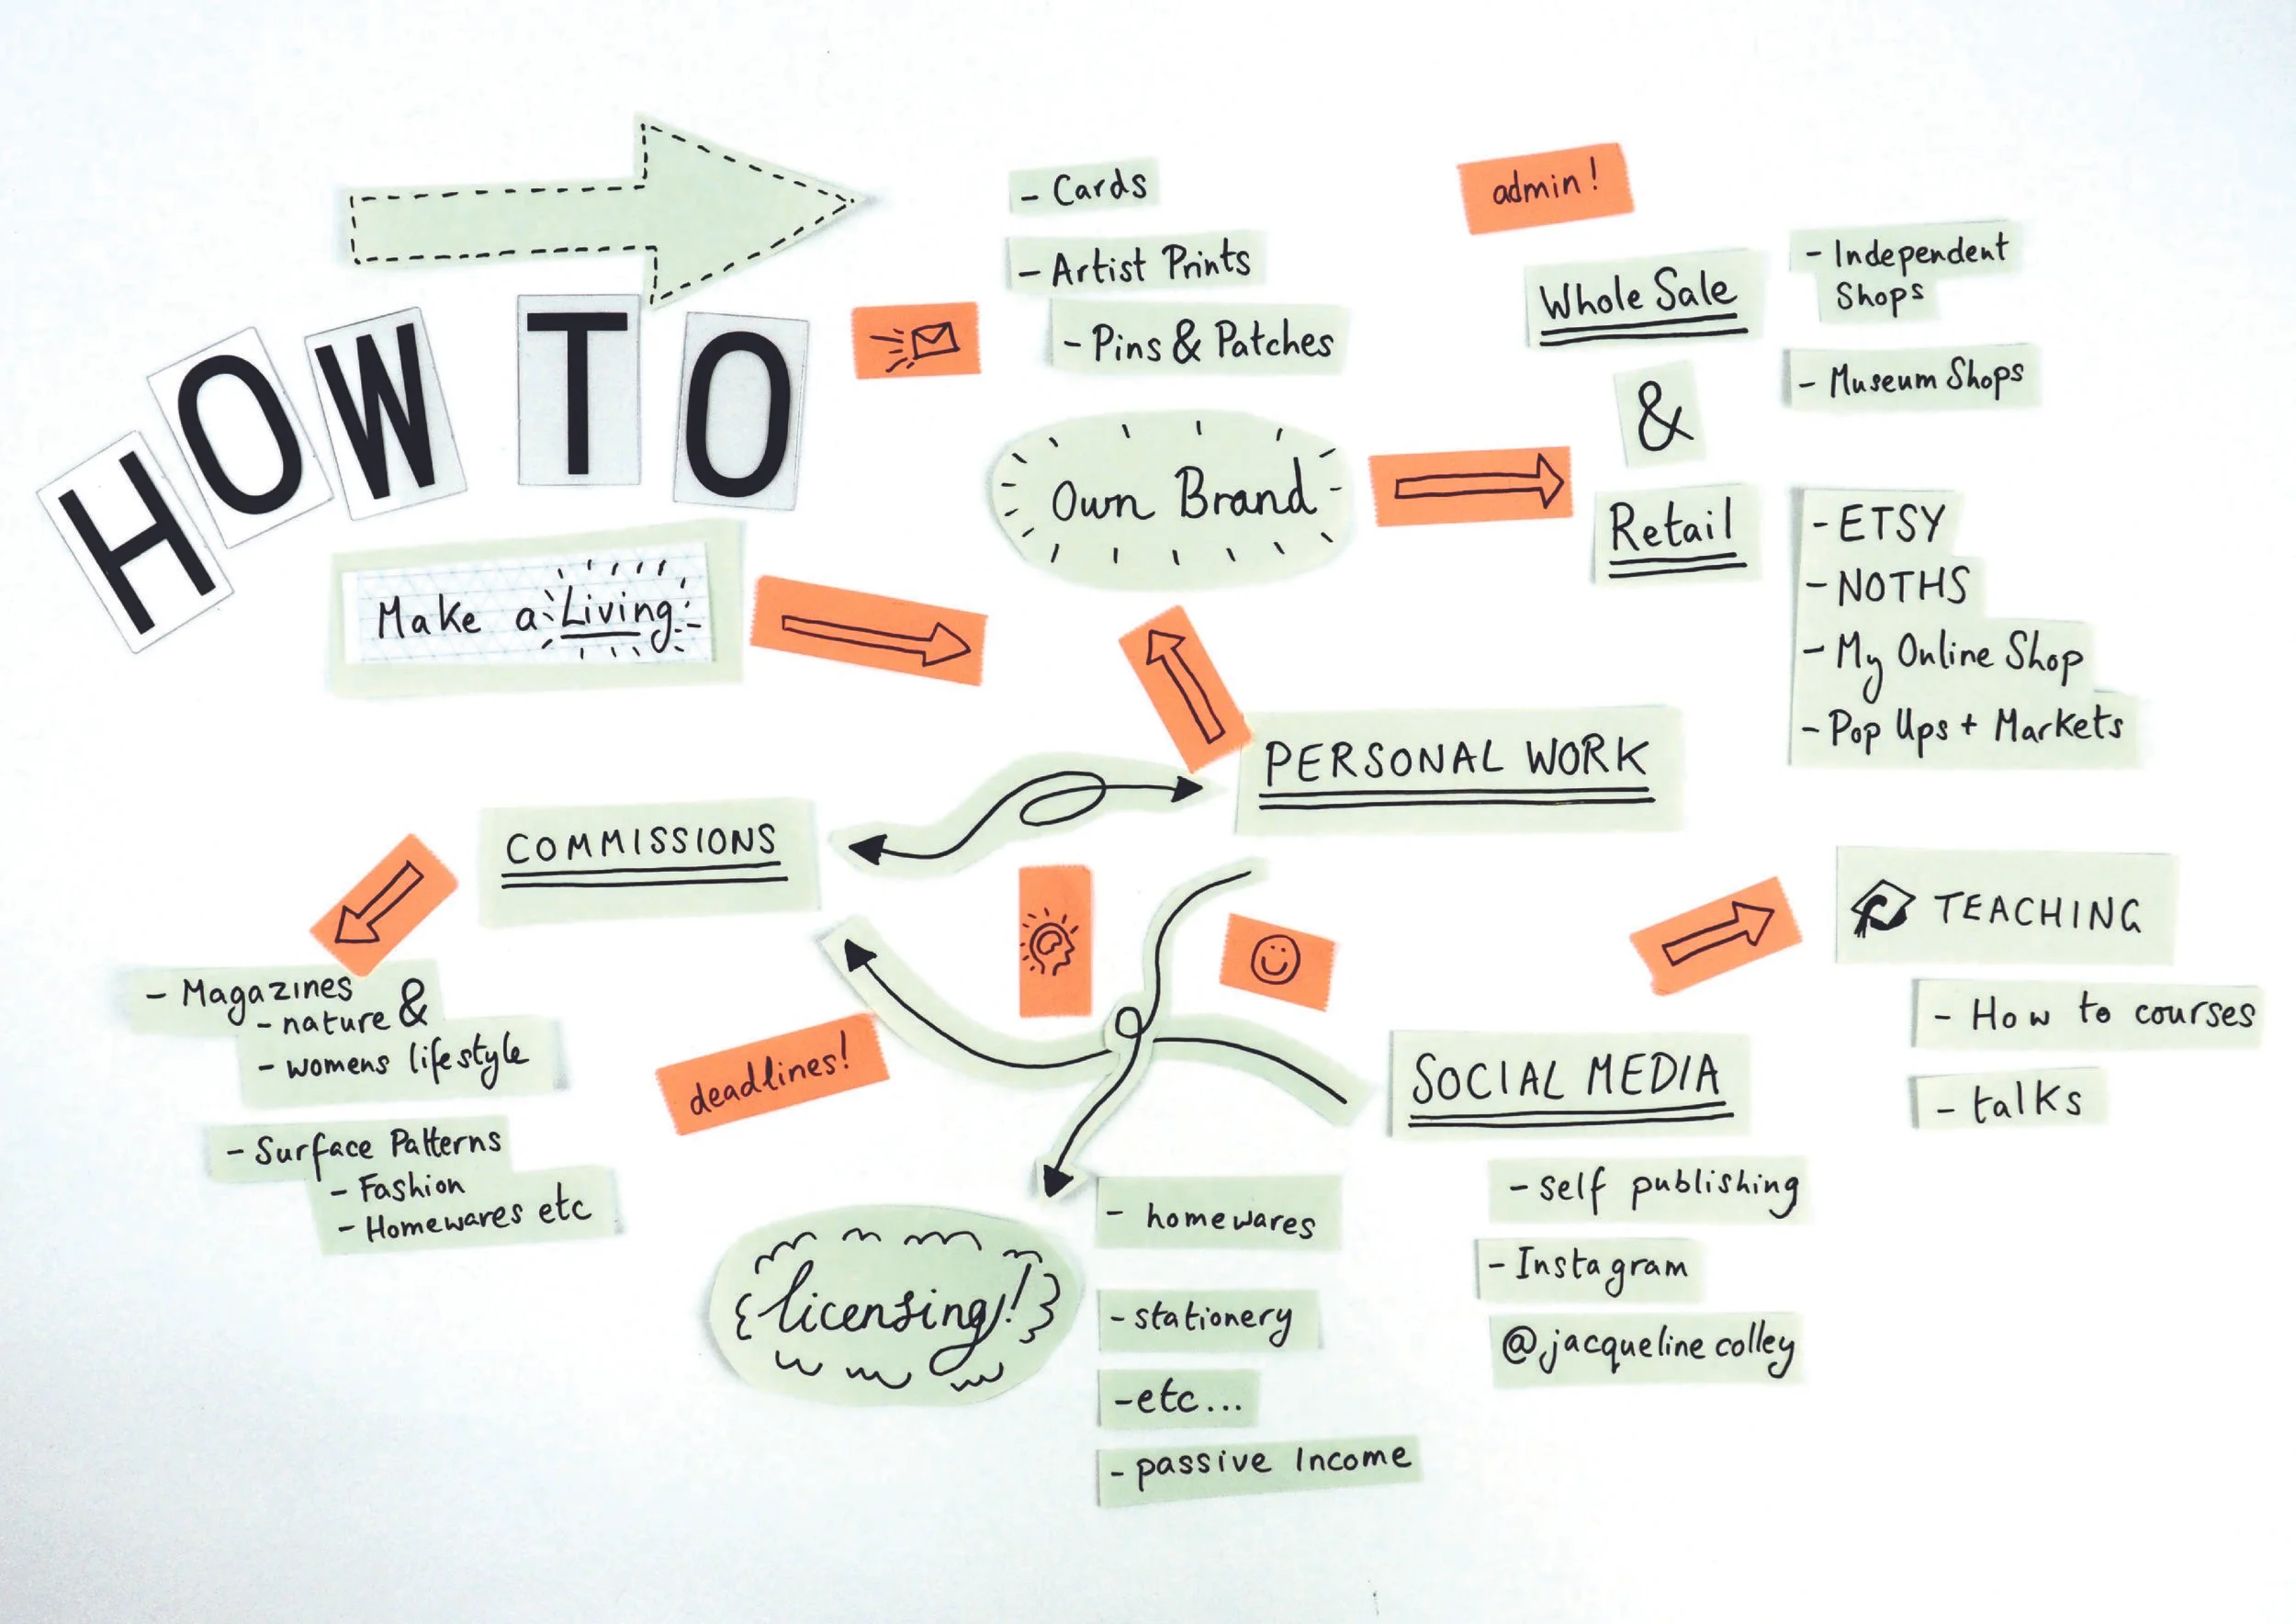 HOW TO
Make a Living
- Cards
- Artist Prints
- Pins & Patches
Own Brand
admin!
Whole Sale
- Independent
Shops
- Museum Shops
&
Retail
- ETSY
- NOTHS
- My Online Shop
- Pop Ups + Markets
PERSONAL WORK
COMMISSIONS
- Magazines
- nature &
- womens lifestyle
- Surface Patterns
- Fashion
- Homewares etc
deadlines!
TEACHING
- How to courses
- talks
SOCIAL MEDIA
- self publishing
- Instagram
@jacqueline colley
licensing!
- homewares
- stationery
- etc...
- passive Income